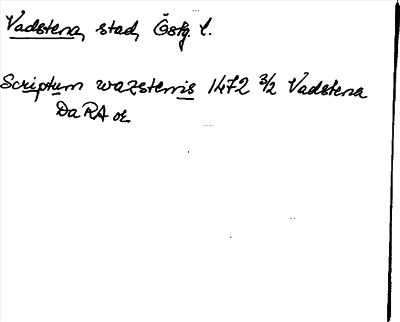 Vadstena, stad, Östg. l.
Scriptum wazstenis 1472 3/2 Vadstena
DaRA or